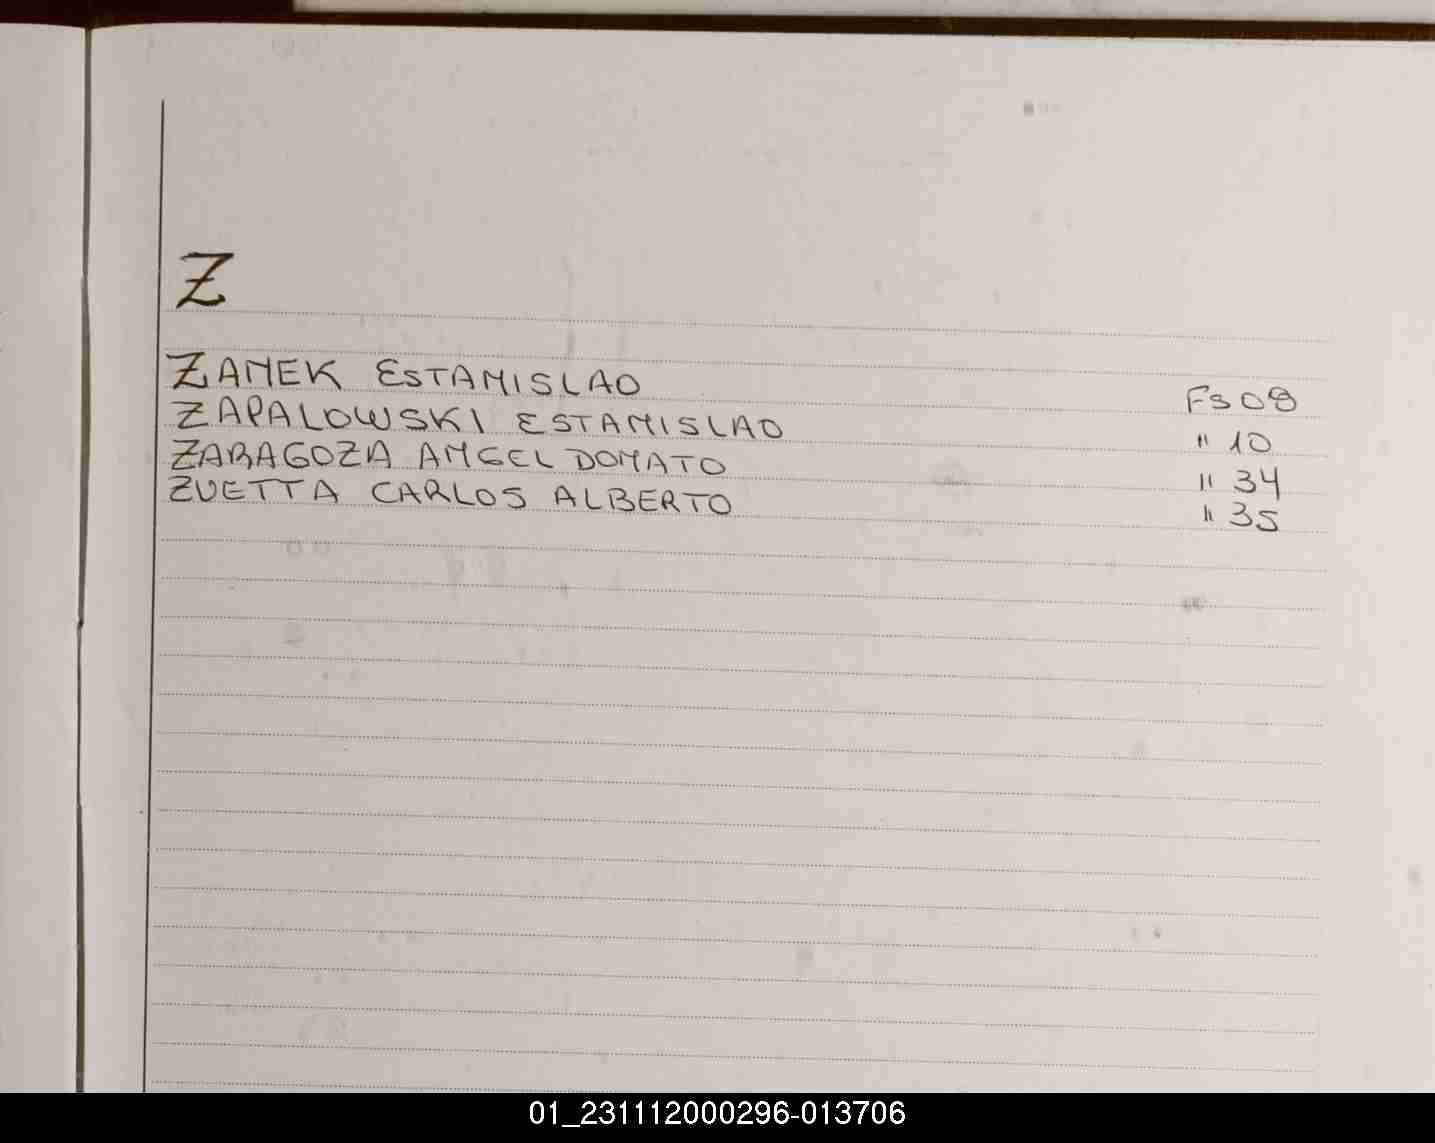 Z
ZANEK ESTANISLAO FS 08
ZAPALOWSKI ESTANISLAO " 10
ZARAGOZA ANGEL DONATO " 34
ZUETTA CARLOS ALBERTO " 35
01_231112000296-013706